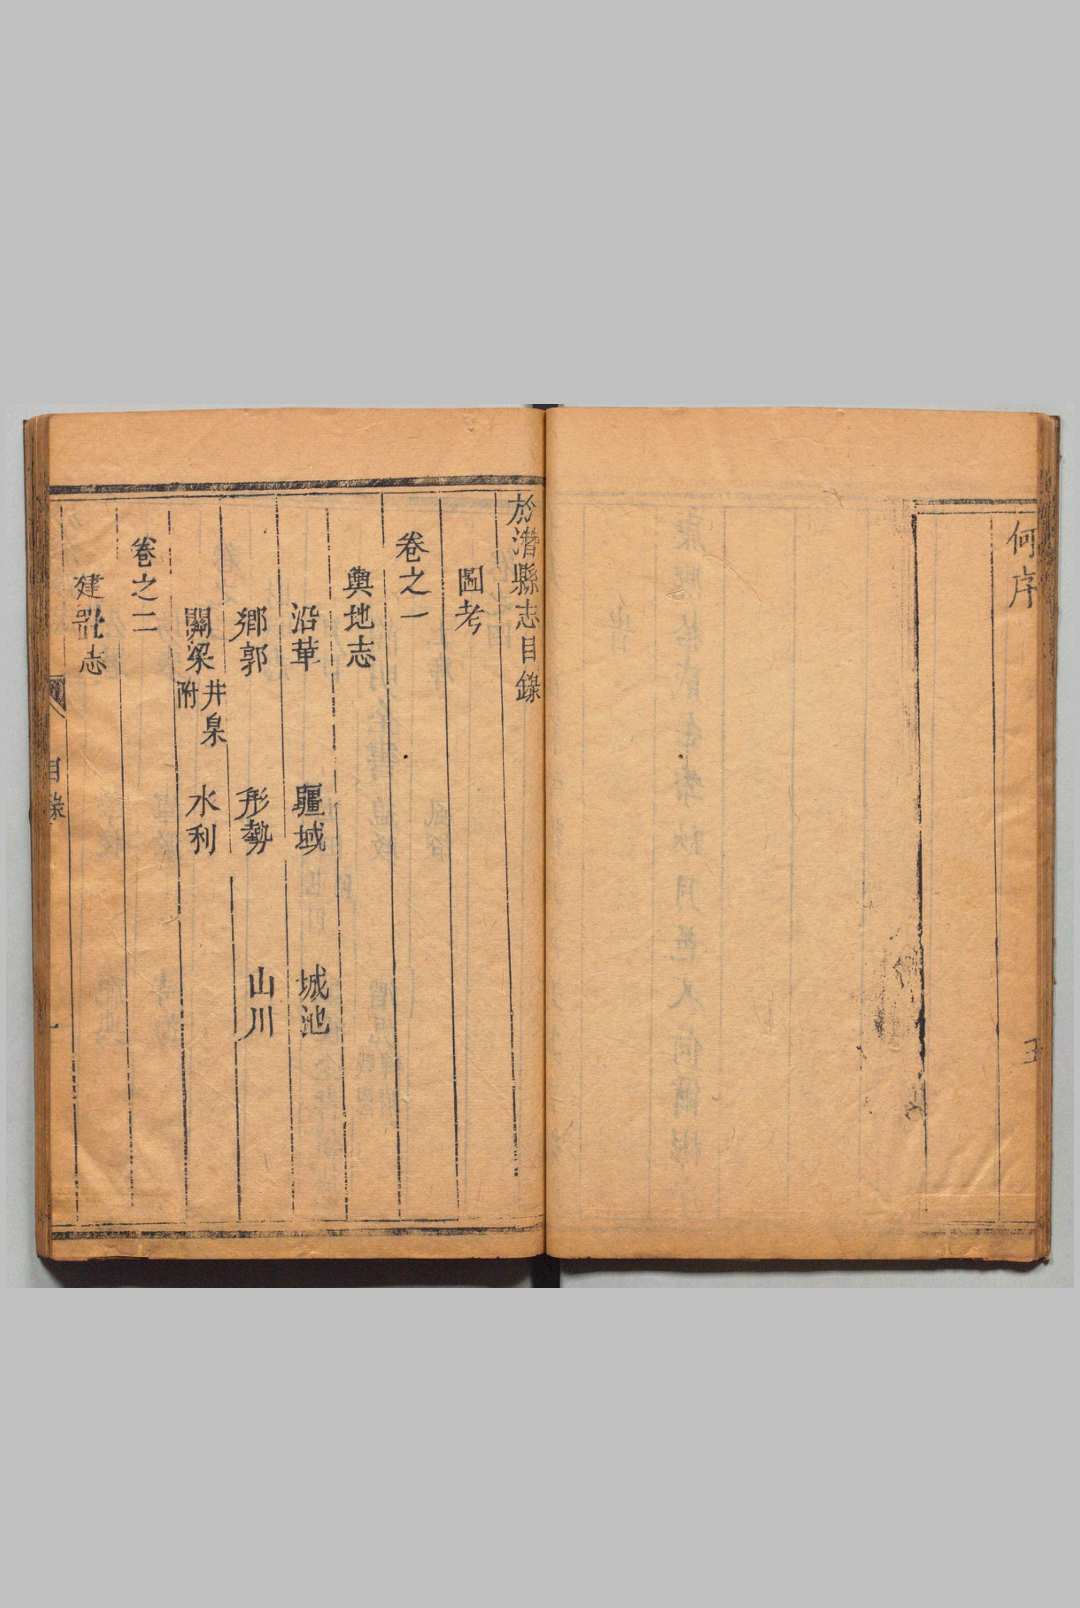 何序
五
於潛縣志目錄
圖考
卷之一
輿地志
沿革 疆域 城池
鄉郭 形勢 山川
關梁 井泉附 水利
卷之二
建置志
目錄
一